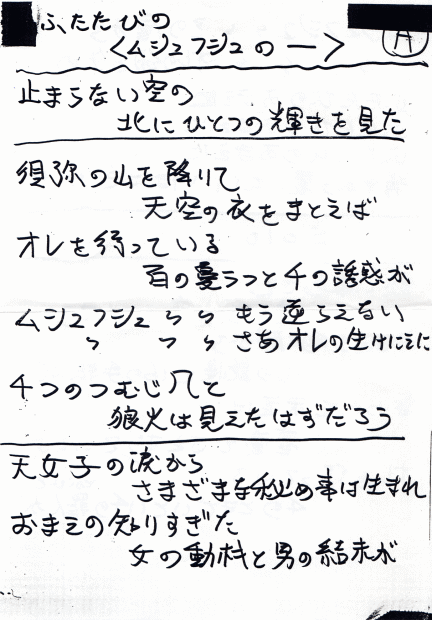 ふたたびの
<ムジュフジュのー>
A
止まらない空の
北にひとつの輝きを見た
須弥の山を降りて
天空の衣をまとえば
オレを待っている
百の憂うつと千の誘惑が
ムジュフジュ 〃 〃 もう逆らえない
〃 〃 〃 さあオレの生けにえに
千つのつむじ風と
狼火は見えたはずだろう
天女子の涙から
さまざまな秘め事は生まれ
おまえの知りすぎた
女の動機と男の結末が